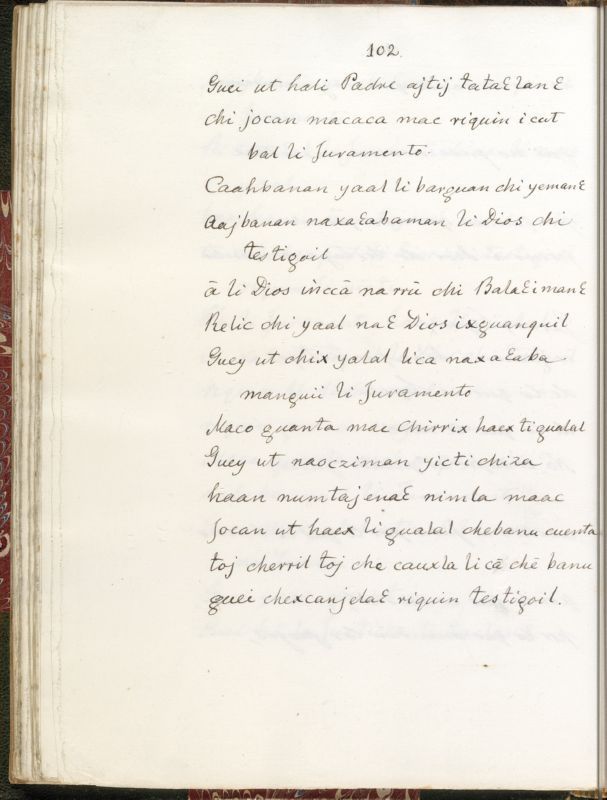 102.
Guei ut hali Padre ajtij tataƐlanƐ
chi jocan macaca mac riquin icut
bal li Juramento.
Caahbanan yaal li barguan chi yemanƐ
Aajbanan naxaƐabaman li Dios chi
testigoil
ā li Dios inccā narrū chi BalaƐimanƐ
Relic chi yaal naƐ Dios ixguanquil
Guey ut chix yalal lica naxaƐaba
manguii li Juramento
Maco guanta mac chirrix haex tigualal
Guey ut naocziman yicti chiza
haan numtajenaƐ nimla maac
Jocan ut haex li gualal chebanu cuenta
toj cherril toj che cauxla li cā chē banu
guei chexcanjelaƐ riquin testigoil.